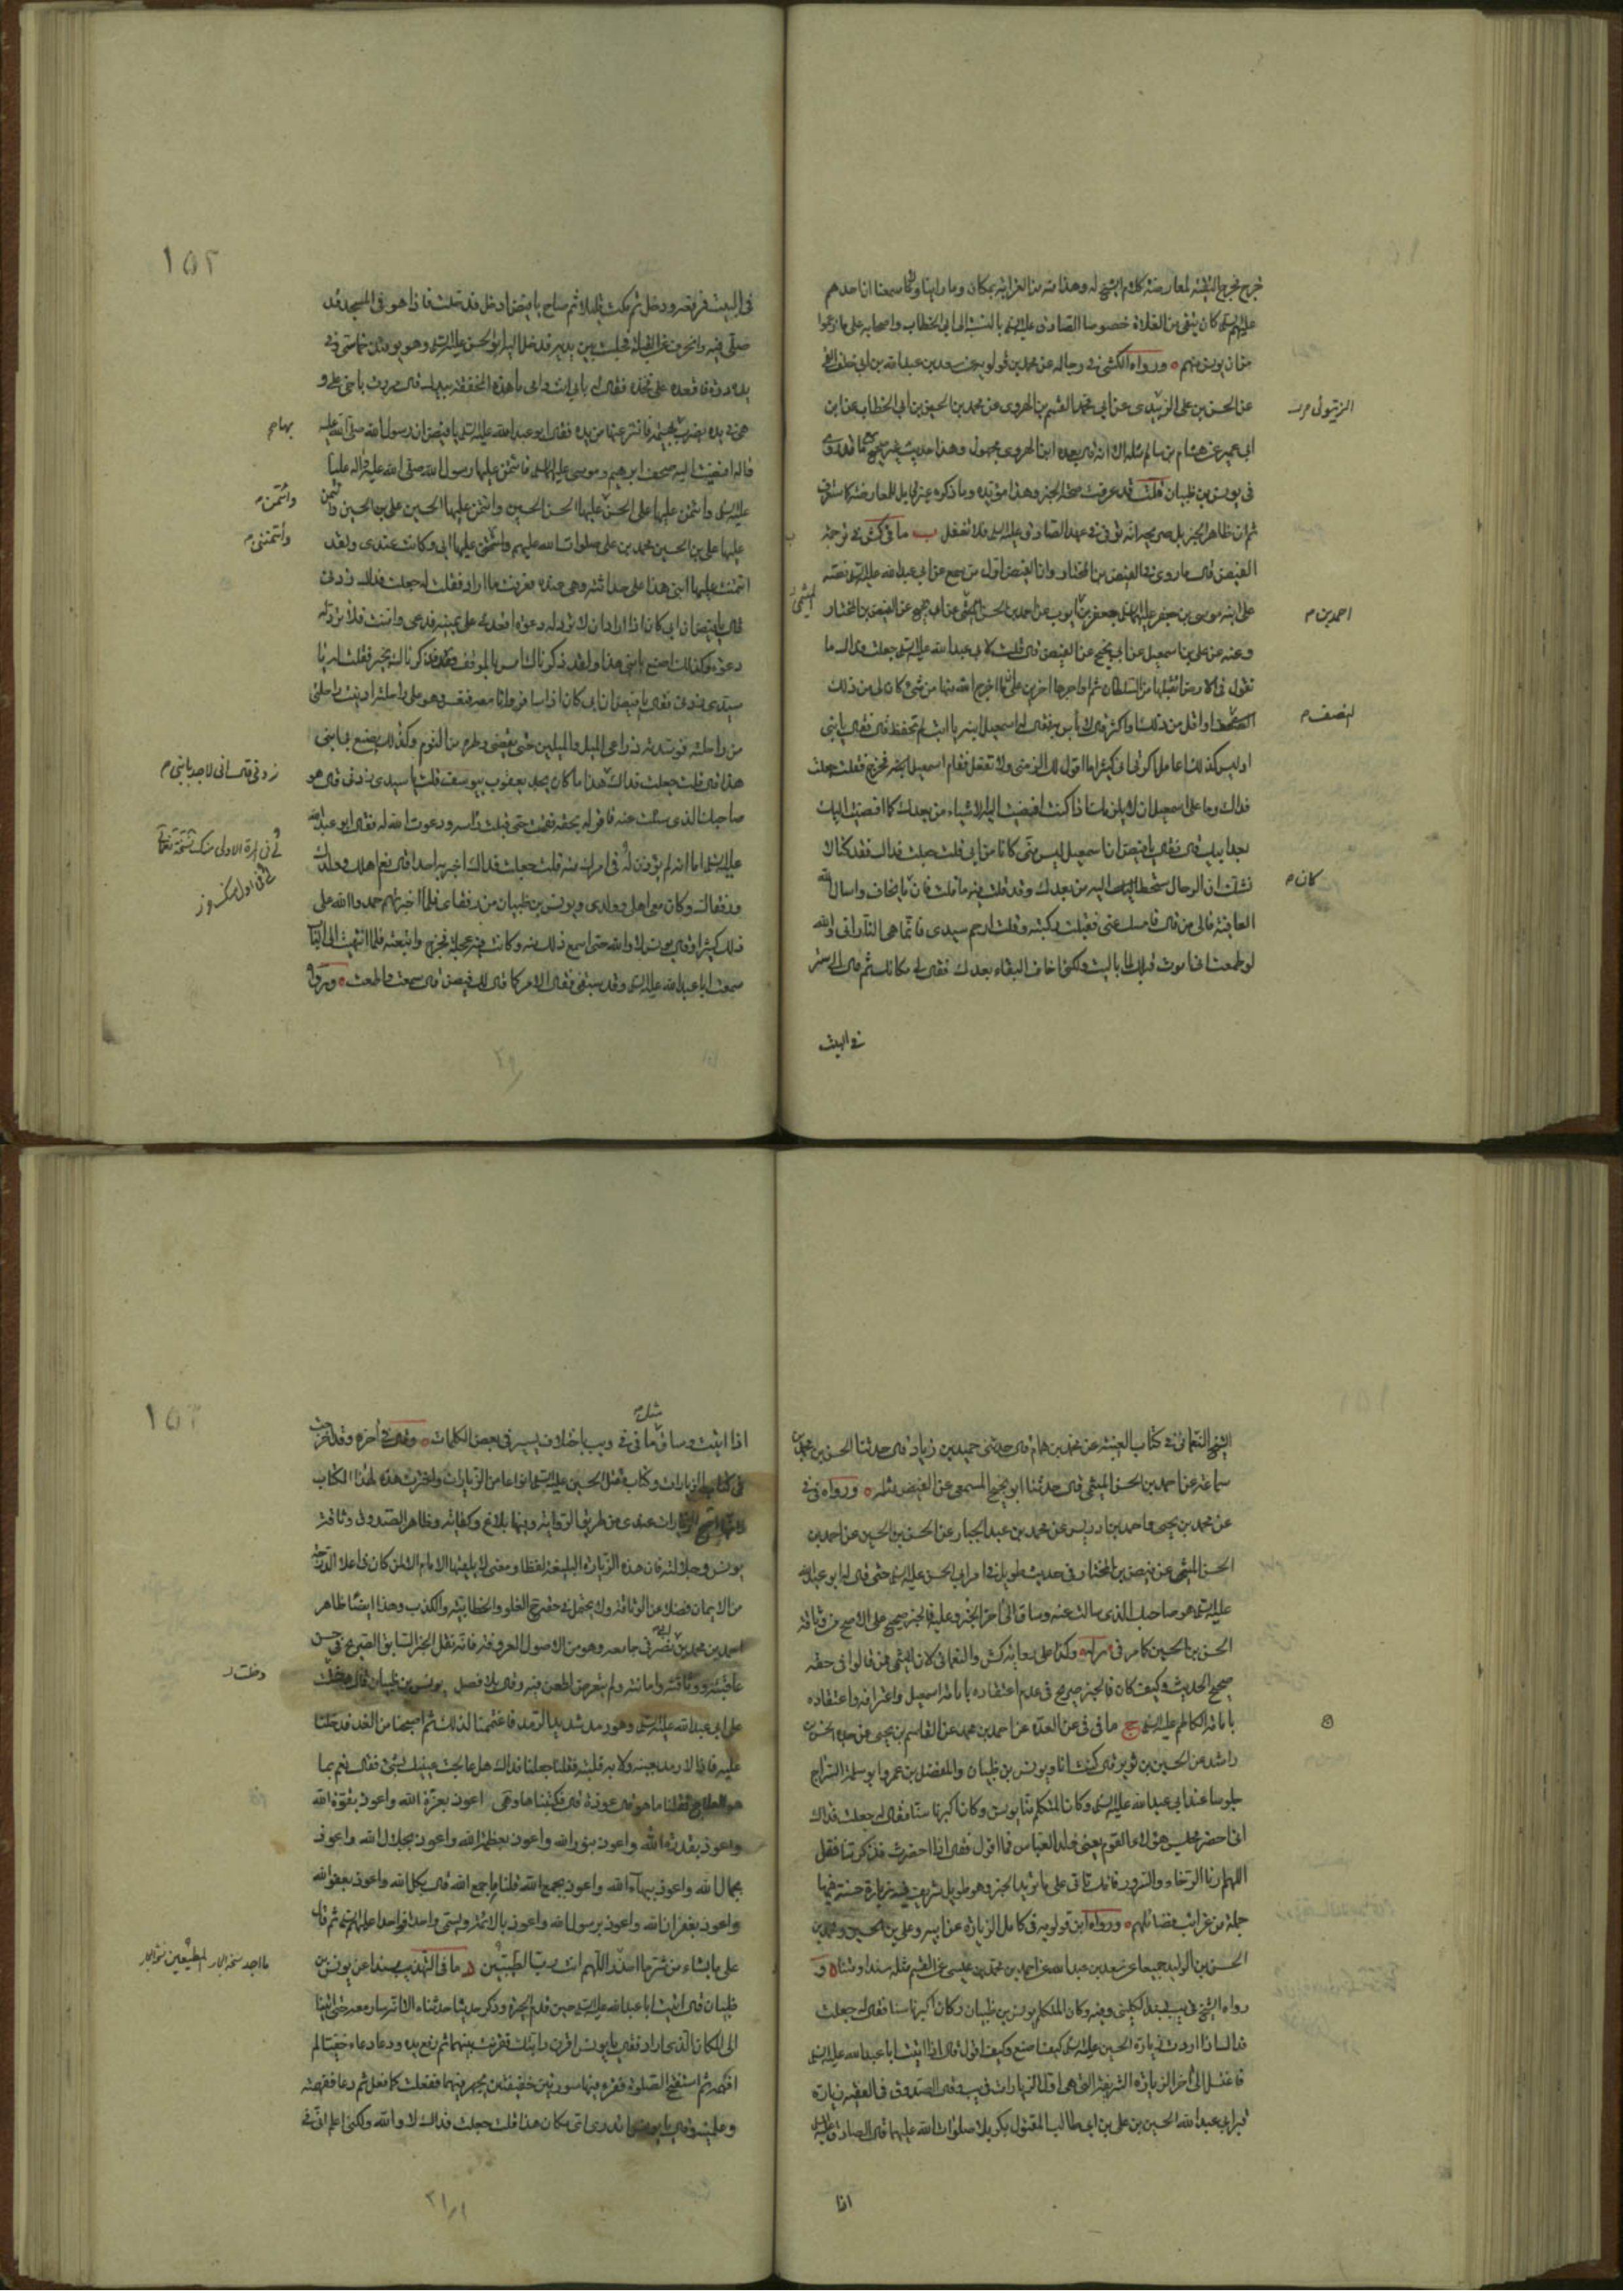 خرج مخرج التقية لمعارضته كلام الشيخ له وهذا منه من الغرابة بمكان وما راينا ولا سمعنا ان احدهم
عليهم السلم كان يتقى من الغلاة خصوصا الصادق عليه السلم بالنسبة الى ابى الخطاب واصحابه على ما زعموا
من ان يونس منهم ورواه الكشى فى رجاله عن محمد بن قولويه عن سعد بن عبد الله بن ابى خلف القمى
عن الحسن بن على الزبيدى عن ابى محمد القسم بن الهروى عن محمد بن الحسين بن ابى الخطاب عن ابن
ابى عمير عن هشام بن سالم مثله الا انه قال بعده ابن الهروى مجهول وهذا حديث غير صحيح مع ما قد روى
فى يونس بن ظبيان قلت قد عرفت صحة الخبر وهذا مؤيده وما ذكره غير قابل للمعارضة كما ستعرف
ثم ان ظاهر الخبر بل صريحه انه توفى فى عهد الصادق عليه السلم فلا تغفل ب ما فى كش فى ترجمة
الفيض قال ما روى فى الفيض بن المختار وان الفيض اول من سمع عن ابى عبد الله عليه السلم نصه
على ابنه موسى بن جعفر عليهما السلم جعفر بن ايوب عن احمد بن الحسن الميثمى عن ابى نجيح عن الفيض بن المختار
وعنه عن على بن اسمعيل عن ابى نجيح عن الفيض قال قلت لابى عبد الله عليه السلم جعلت فداك ما
تقول فى الارض اتقبلها من السلطان ثم اواجرها اخرين على ان ما اخرج الله منها من شئ كان لى من ذلك
النصف او اقل من ذلك او اكثر قال لا باس فقال له اسمعيل ابنه يا ابت لم تحفظ قال فقال يا بنى
اوليس كذلك اعامل اكرتى ان كثيرا ما اقول لك الزمنى ولا تفعل فقام اسمعيل ابنه فخرج فقلت جعلت
فداك وما على اسمعيل ان لا يلزمك اذا كنت افضيت اليه الاشياء من بعدك كما افضيت اليك
بعد ابيك قال فقال يا فيض ان اسمعيل ليس منى كانا من ابى قلت جعلت فداك فقد كنا لا
نشك ان الرحال ستحط اليه من بعدك وقد قلت فيه ما قلت فان كان ما يخاف واسال الله
العافية فالى من قال فامسك عنى فقبلت ركبته وقلت ارحم سيدى فانما هى النار انى والله
لو طمعت انى اموت قبلك لما باليت ولكنى اخاف البقاء بعدك فقال لى مكانك ثم قام الى ستر
فى البيت
الزيتونى
احمد بن م
النصف م
كان م
١٥٢
فى البيت فرفعه ودخل ثم مكث قليلا ثم صاح يا فيض ادخل فدخلت فاذا هو فى المسجد قد
صلى فيه وانحرف عن القبلة فجلست بين يديه فدخل اليه ابو الحسن عليه السلم وهو يومئذ خماسى فى
يده درة فاقعده على فخذه فقال له بابى انت وامى ما هذه المخفقة بيدك قال مررت باخى على و
هى فى يده يضرب بهيمة فانتزعتها من يده فقال ابو عبد الله عليه السلم يا فيض ان رسول الله صلى الله عليه
واله افضيت اليه صحف ابرهيم وموسى عليهما السلم فائتمن عليها رسول الله صلى الله عليه واله عليا
عليه السلم وائتمن عليها على الحسن عليهما السلم وائتمن عليها الحسن الحسين وائتمن عليها الحسين على بن الحسين وائتمن
عليها على بن الحسين محمد بن على صلوات الله عليهم وائتمننى عليها ابى وكانت عندى ولقد
ائتمنت عليها ابنى هذا على حداثته وهى عنده فعرفت ما اراد فقلت له جعلت فداك زدنى
قال يا فيض ان ابى كان اذا اراد ان لا ترد له دعوة اقعدنى على يمينه فدعى وامنت فلا ترد له
دعوة وكذلك اصنع بابنى هذا ولقد ذكرناك امس بالموقف فذكرناك بخير فقلت له يا
سيدى زدنى فقال يا فيض ان ابى كان اذا سافر وانا معه فنعس وهو على راحلته ادنيت راحلتى
من راحلته فوسدته ذراعى الميل والميلين حتى يقضى وطره من النوم وكذلك يصنع بى ابنى
هذا قال قلت جعلت فداك زدنى قال انى لاجد بابنى هذا ما كان يجد يعقوب بيوسف قلت يا سيدى زدنى قال هو
صاحبك الذى سالت عنه فاقر له بحقه فقمت حتى قبلت راسه ودعوت الله له فقال ابو عبد الله
عليه السلم اما انه لم يؤذن له فى امرك منه قلت جعلت فداك اخبر به احدا قال نعم اهلك وولدك
ورفقاءك وكان معى اهلى وولدى ويونس بن ظبيان من رفقاى فلما اخبرتهم حمدوا الله على
ذلك كثيرا وقال يونس لا والله حتى اسمع ذلك منه وكانت فيه عجلة فخرج واتبعته فلما انتهيت الى الباب
سمعت ابا عبد الله عليه السلم وقد سبقنى فقال الامر كما قال لك فيض قال سمعت واطعت وروى
بها م
وائتمن م
وائتمننى م
زدنى قال انى لاجد بابنى م
الشيخ النعمانى فى كتاب الغيبة عن محمد بن همام قال حدثنى حميد بن زياد قال حدثنا الحسن بن محمد بن
سماعة عن احمد بن الحسن الميثمى قال حدثنا ابو نجيح المسمعى عن الفيض مثله ورواه فى فى
عن محمد بن يحيى واحمد بن ادريس عن محمد بن عبد الجبار عن الحسن بن الحسين عن احمد بن
الحسن الميثمى عن فيض بن المختار فى حديث طويل فى امر ابى الحسن عليه السلم حتى قال له ابو عبد الله
عليه السلم هو صاحبك الذى سالت عنه وساق الى اخر الخبر وعليه فالخبر صحيح على الاصح من وثاقة
الحسن بن الحسين كما مر فى وكذا على رواية كش والنعمانى لان الميثمى ممن قالوا فى حقه
صحيح الحديث وكيف كان فالخبر صريح فى عدم اعتقاده بامامة اسمعيل واعترافه واعتقاده
بامامة الكاظم عليه السلم ج ما فى فى عن العدة عن احمد بن محمد عن القاسم بن يحيى عن جده الحسن بن
راشد عن الحسين بن ثوير قال كنت انا ويونس بن ظبيان والمفضل بن عمر وابو سلمة السراج
جلوسا عند ابى عبد الله عليه السلم وكان المتكلم منا يونس وكان اكبرنا سنا فقال له جعلت فداك
انى احضر مجلس هؤلاء القوم يعنى ولد العباس فما اقول فقال اذا حضرت فذكرتنا فقل
اللهم ارنا الرخاء والسرور فانك تاتى على ما تريد الخبر وهو طويل شريف فيه زيارة حسنة فيها
جملة من غرائب فضائلهم ورواه ابن قولويه فى كامل الزيارة عن ابيه وعلى بن الحسين ومحمد بن
الحسن بن الوليد جميعا عن سعد بن عبد الله عن احمد بن محمد بن عيسى عن القسم مثله سندا ومتنا و
رواه الشيخ فى يب عن الكلينى وفيه وكان المتكلم يونس بن ظبيان وكان اكبرنا سنا فقال له جعلت
فداك اذا اردت زيارة الحسين عليه السلم كيف اصنع وكيف اقول قال اذا اتيت ابا عبد الله عليه السلم
فاغتسل الى اخر الزيارة الشريفة التى هى اول الزيارات فى يب وقال الصدوق فى الفقيه زيارة
قبر ابى عبد الله الحسين بن على بن ابى طالب المقتول بكربلا صلوات الله عليهما قال الصادق عليه السلم
اذا
١٥٣
اذا اتيت وساق مثل ما فى فى ويب باختلاف يسير فى بعض الكلمات وقال فى اخره وقد اخرجت
فى كتاب الزيارات وكتاب مقتل الحسين عليه السلم انواعا من الزيارات واخترت هذه لهذا الكتاب
لانها اصح الزيارات عندى من طريق الرواية وفيها بلاغ وكفاية وظاهر الصدوق وثاقة
يونس وجلالته فان هذه الزيارة البليغة لفظا ومعنى لا يلقيها الامام الا لمن كان فى اعلا الدرجة
من الايمان فضلا عن الوثاقة ولا يحتمل فى حقه الغلو والخطابية والكذب وهذا ايضا ظاهر
احمد بن محمد بن ابى نصر فى جامعه وهو من الاصول المعروفة فانه نقل الخبر السابق الصريح فى حسن
عاقبته ووثاقته وامانته ولم يتعرض لطعن فيه وقال بلا فصل يونس بن ظبيان قال دخلت
على ابى عبد الله عليه السلم وهو رمد شديد الرمد فاغتممنا لذلك ثم اصبحنا من الغد فدخلنا
عليه فاذا لا رمد بعينه ولا به قلبة فقلنا جعلنا فداك هل عالجت عينيك بشئ فقال نعم بما
هو العلاج فقلنا ما هو قال عوذة قال فكتبناها وهى اعوذ بعزة الله واعوذ بقوة الله
واعوذ بقدرة الله واعوذ بنور الله واعوذ بعظمة الله واعوذ بجلال الله واعوذ
بجمال الله واعوذ ببهاء الله واعوذ بجمع الله قلنا ما جمع الله قال بكل الله واعوذ بعفو الله
واعوذ بغفران الله واعوذ برسول الله واعوذ بالائمة وسمى واحدا فواحدا عليهم السلم ثم قال
على ما يشاء من شر ما اجد اللهم انت رب الطيبين د ما فى التهذيب مسندا عن يونس بن
ظبيان قال اتيت ابا عبد الله عليه السلم حين قدم الحيرة وذكر حديثا حدثناه الا انه سار معه حتى انتهينا
الى المكان الذى اراد فقال يا يونس اقرن دابتك فقرنت بينهما ثم رفع يده ودعا دعاء خفيا لم
افهمه ثم استفتح الصلوة فقرء فيها سورتين خفيفتين يجهر فيهما ففعلت كما فعل ثم دعا ففهمته
وعلمنيه وقال يا يونس اتدرى اى مكان هذا قلت جعلت فداك لا والله ولكنى اعلم انى فى
دخلت